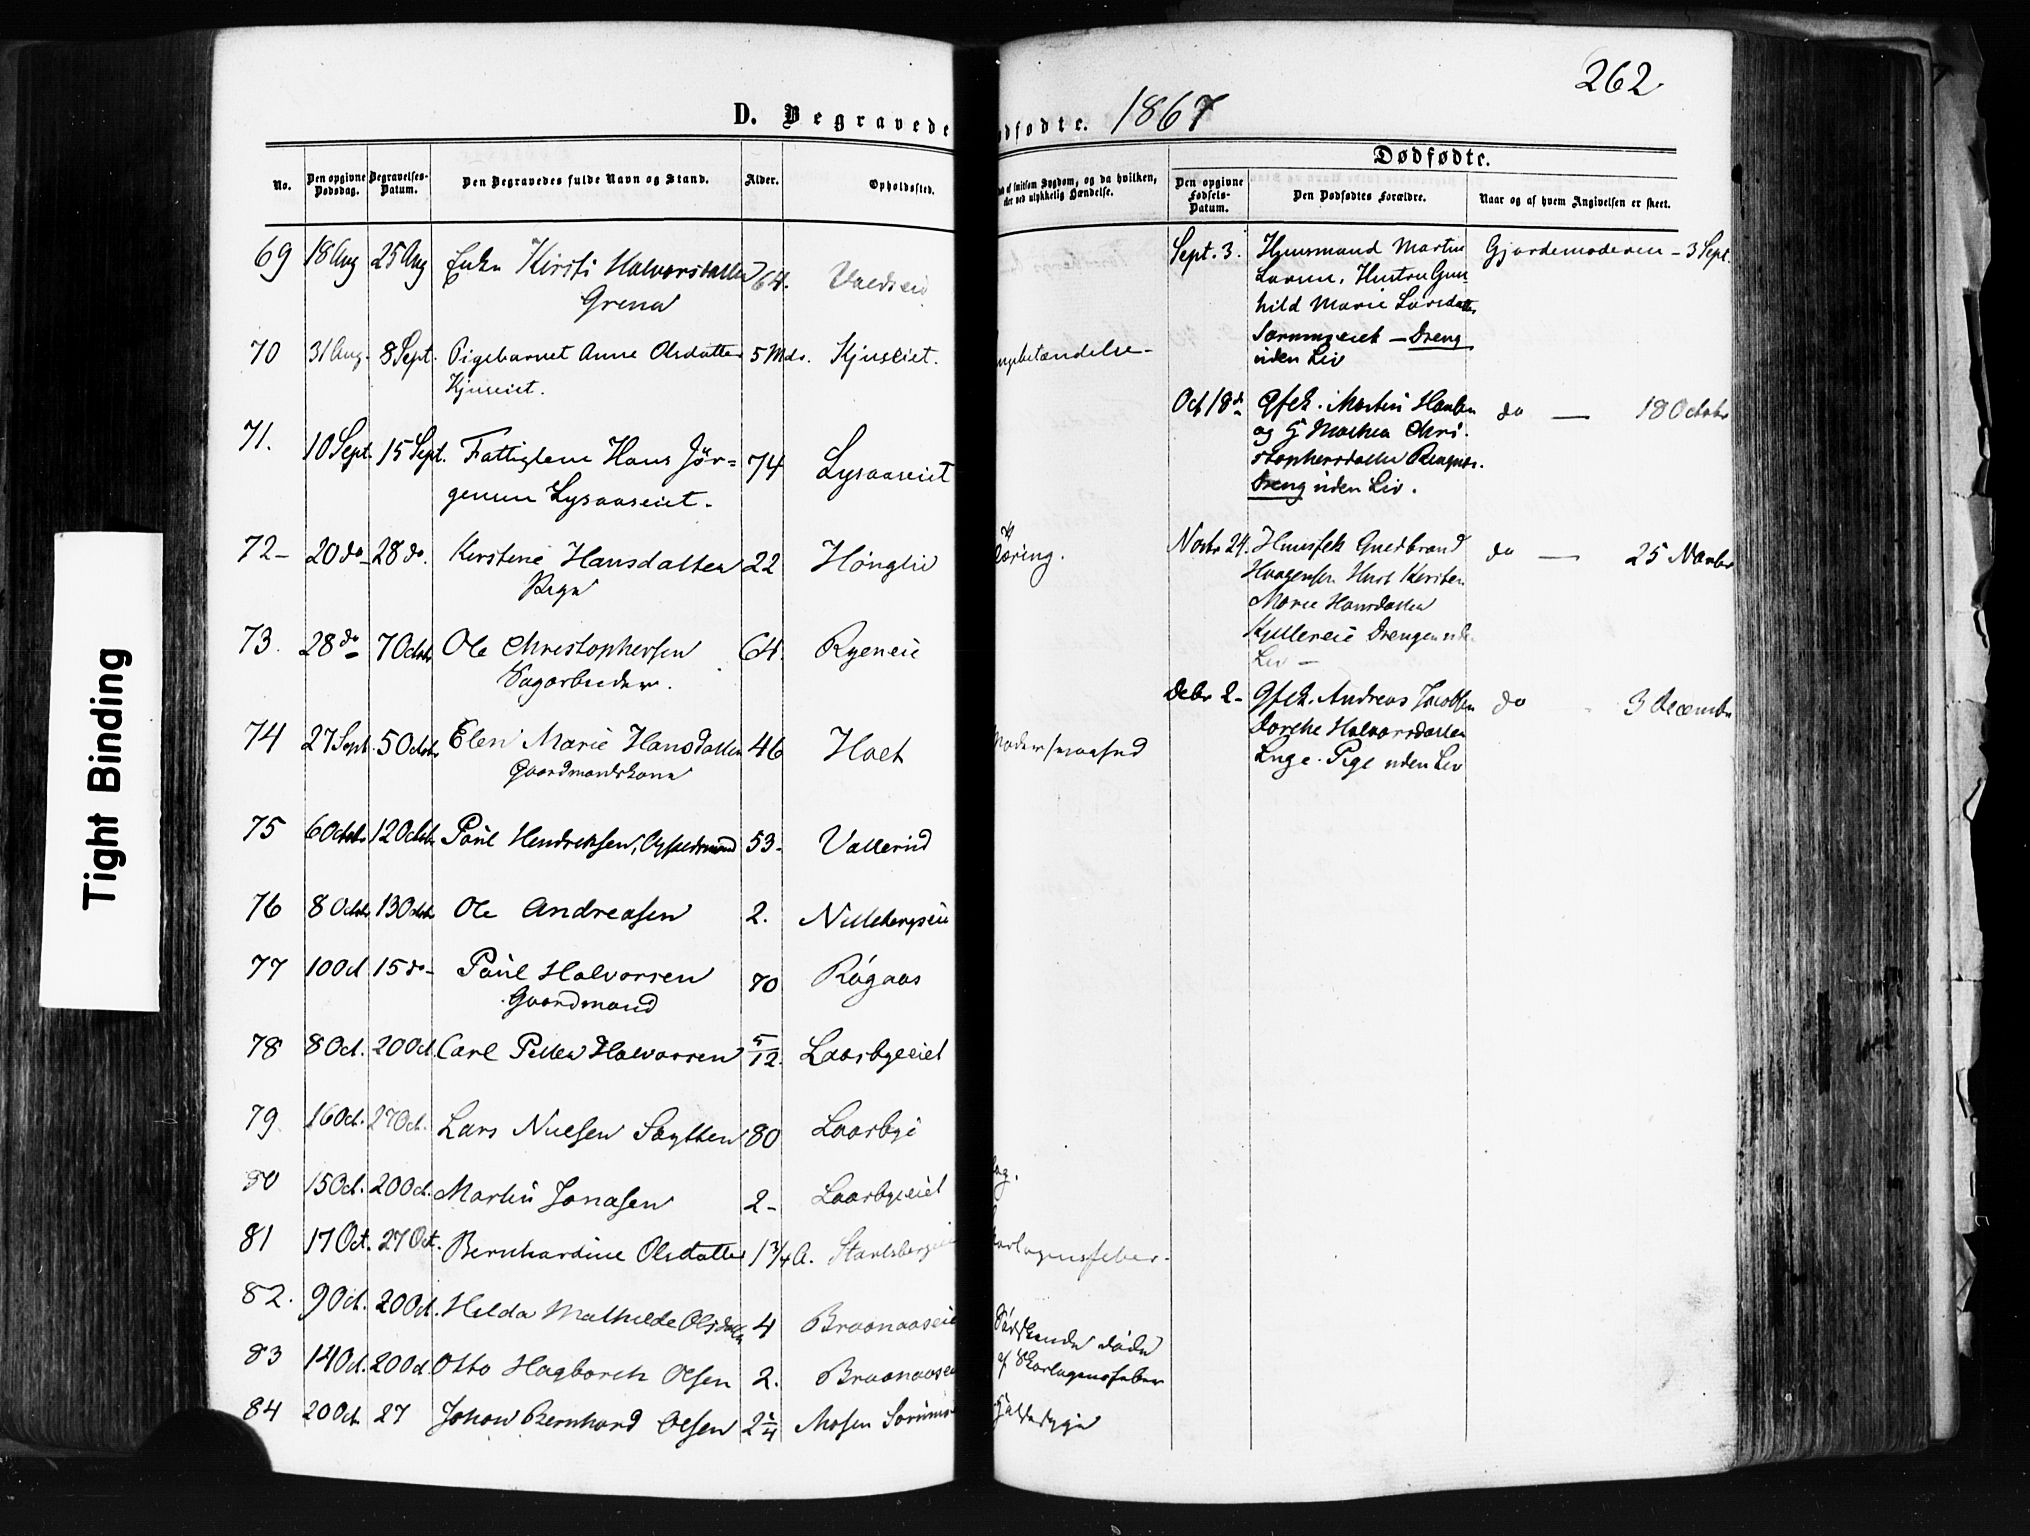 262.
D. Begravede
dfødte. 1867
Dødfødte.
No.
Den opgivne Dødsdag.
Begravelses-Datum.
Den Begravedes fulde Navn og Stand.
Alder.
Opholdssted.
af smitsom Sygdom, og da hvilken,
eller ved ulykkelig Hændelse.
Den opgivne Fødsels-Datum.
Den Dødfødtes Forældre.
Naar og af hvem Angivelsen er skeet.
69 18 Aug 25 Aug Enke Kirsti Halvorsdatter 64.
Grena
70 31 Aug. 8 Sept. Pigebarnet Anne Olsdatter 5 Mdr. Kjuseiet.
Kjuseiet.
ngebetændelse-
71. 10 Sept. 15 Sept. Fattiglem Hans Jør= 74 Lysaaseiet
gensen Lysaaseiet.
72- 20 do 28 do. Kerstine Hansdatter 22 Hønglie
Pige
73. 28 do 7 Octobr Ole Christophersen 64. Ryeneie
Sagarbeider.
74 27 Sept. 5 Octobr Elen Marie Hansdatter 46 Haet
Gaardmandskone
75 6 Octobr 12 Octobr Paul Hendriksen, 53- Vallerud
76 8 Octobr 13 Octobr Ole Andreasen 2. Nillebergseie
77 10 Oct 15 do- Paul Halvorsen 70 Røgaas
Gaardmand
78 8 Oct. 20 Oct. Carl Petter Halvorsen 5/12. Laarbyeeiet
79 16 Oct. 27 Oct. Lars Nielsen 80 Laarbye
80 15 Oct. 20 Oct. Martin Jonasen 2- Laarbyeeiet
81 17 Oct. 27 Oct. Bernhardine Olsdatter 1 3/4 A.
arlagensfeber.
82. 9 Oct. 20 Oct. Hilda Mathilde Olsdatter 4 Braanaaseie
Södskende døde
83 14 Oct. 20 Oct Otto Hagbarth Olsen 2. Braanaasen
af Skarlagensfeber
84 20 Oct. 27 Johan Bernhard Olsen 2 1/4 Mosen Sørums
Sept. 3. Huusmand Martin Gjordemoderen - 3 Sept.
Larsen, Hustru Gun
hild Marie Larsdatter
Sørumseiet - Dreng
uden Liv
Oct 18 do Gfck. Martin Hansen do — 18 Octobr
og G Mathea Chri-
stophersdatter
Dreng uden Liv.
Novbr 24. Huusfck Gudbrand do — 25 Novbr
Haagensen Hust Kersten
Marie Hansdatter
Kjellereie Dreng uden
Liv -
Debr 2- Gfck. Andreas Jacobsen do 3 Decembr
Dorthe Halvorsdatter
Enge. Pige uden Liv
Tight Binding